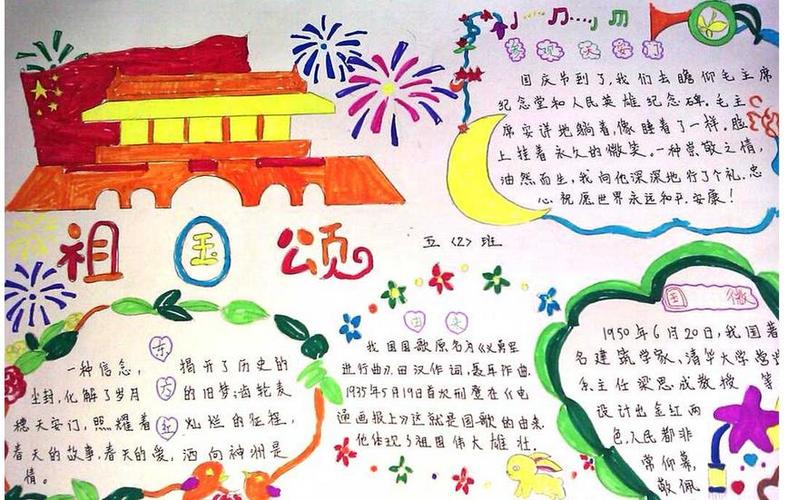 参观天安门
国庆节到了,我们去瞻仰毛主席
纪念堂和人民英雄纪念碑。毛主
席安详地躺着,像睡着了一样。脸
上挂着永久的微笑。一种崇敬之情,
油然而生,我向他深深地行了个礼,忠
心祝愿世界永远和平,安康!
祖国颂
五〈2〉班
东方红
一种信念,揭开了历史的
尘封,化解了岁月的旧梦;齿轮麦
穗天安门,照耀着灿烂的征程,
春天的故事,春天的爱,洒向神州是
情。
由来
我国国歌原名为《义勇军
进行曲》,田汉作词,聂耳作曲.
1935年5月19日首次刊登在《电
通画报上》这就是国歌的由来.
他体现了祖国伟大雄壮.
国徽
1950年6月20日,我国著
名建筑学家、清华大学营学
系主任梁思成教授等
设计出金红两
色,人民都非
常仰慕,
敬佩